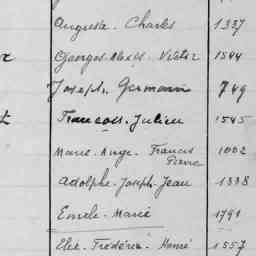 Auguste - Charles 1337
Georges-Alexis-Victor 1544
Joseph, Germain 749
François-Julien 1545
Marie-Ange-Francis 1002
Pierre
Adolphe-Joseph-Jean 1338
Emile-Marie 1791
Elie-Frédéric-Honoré 1557